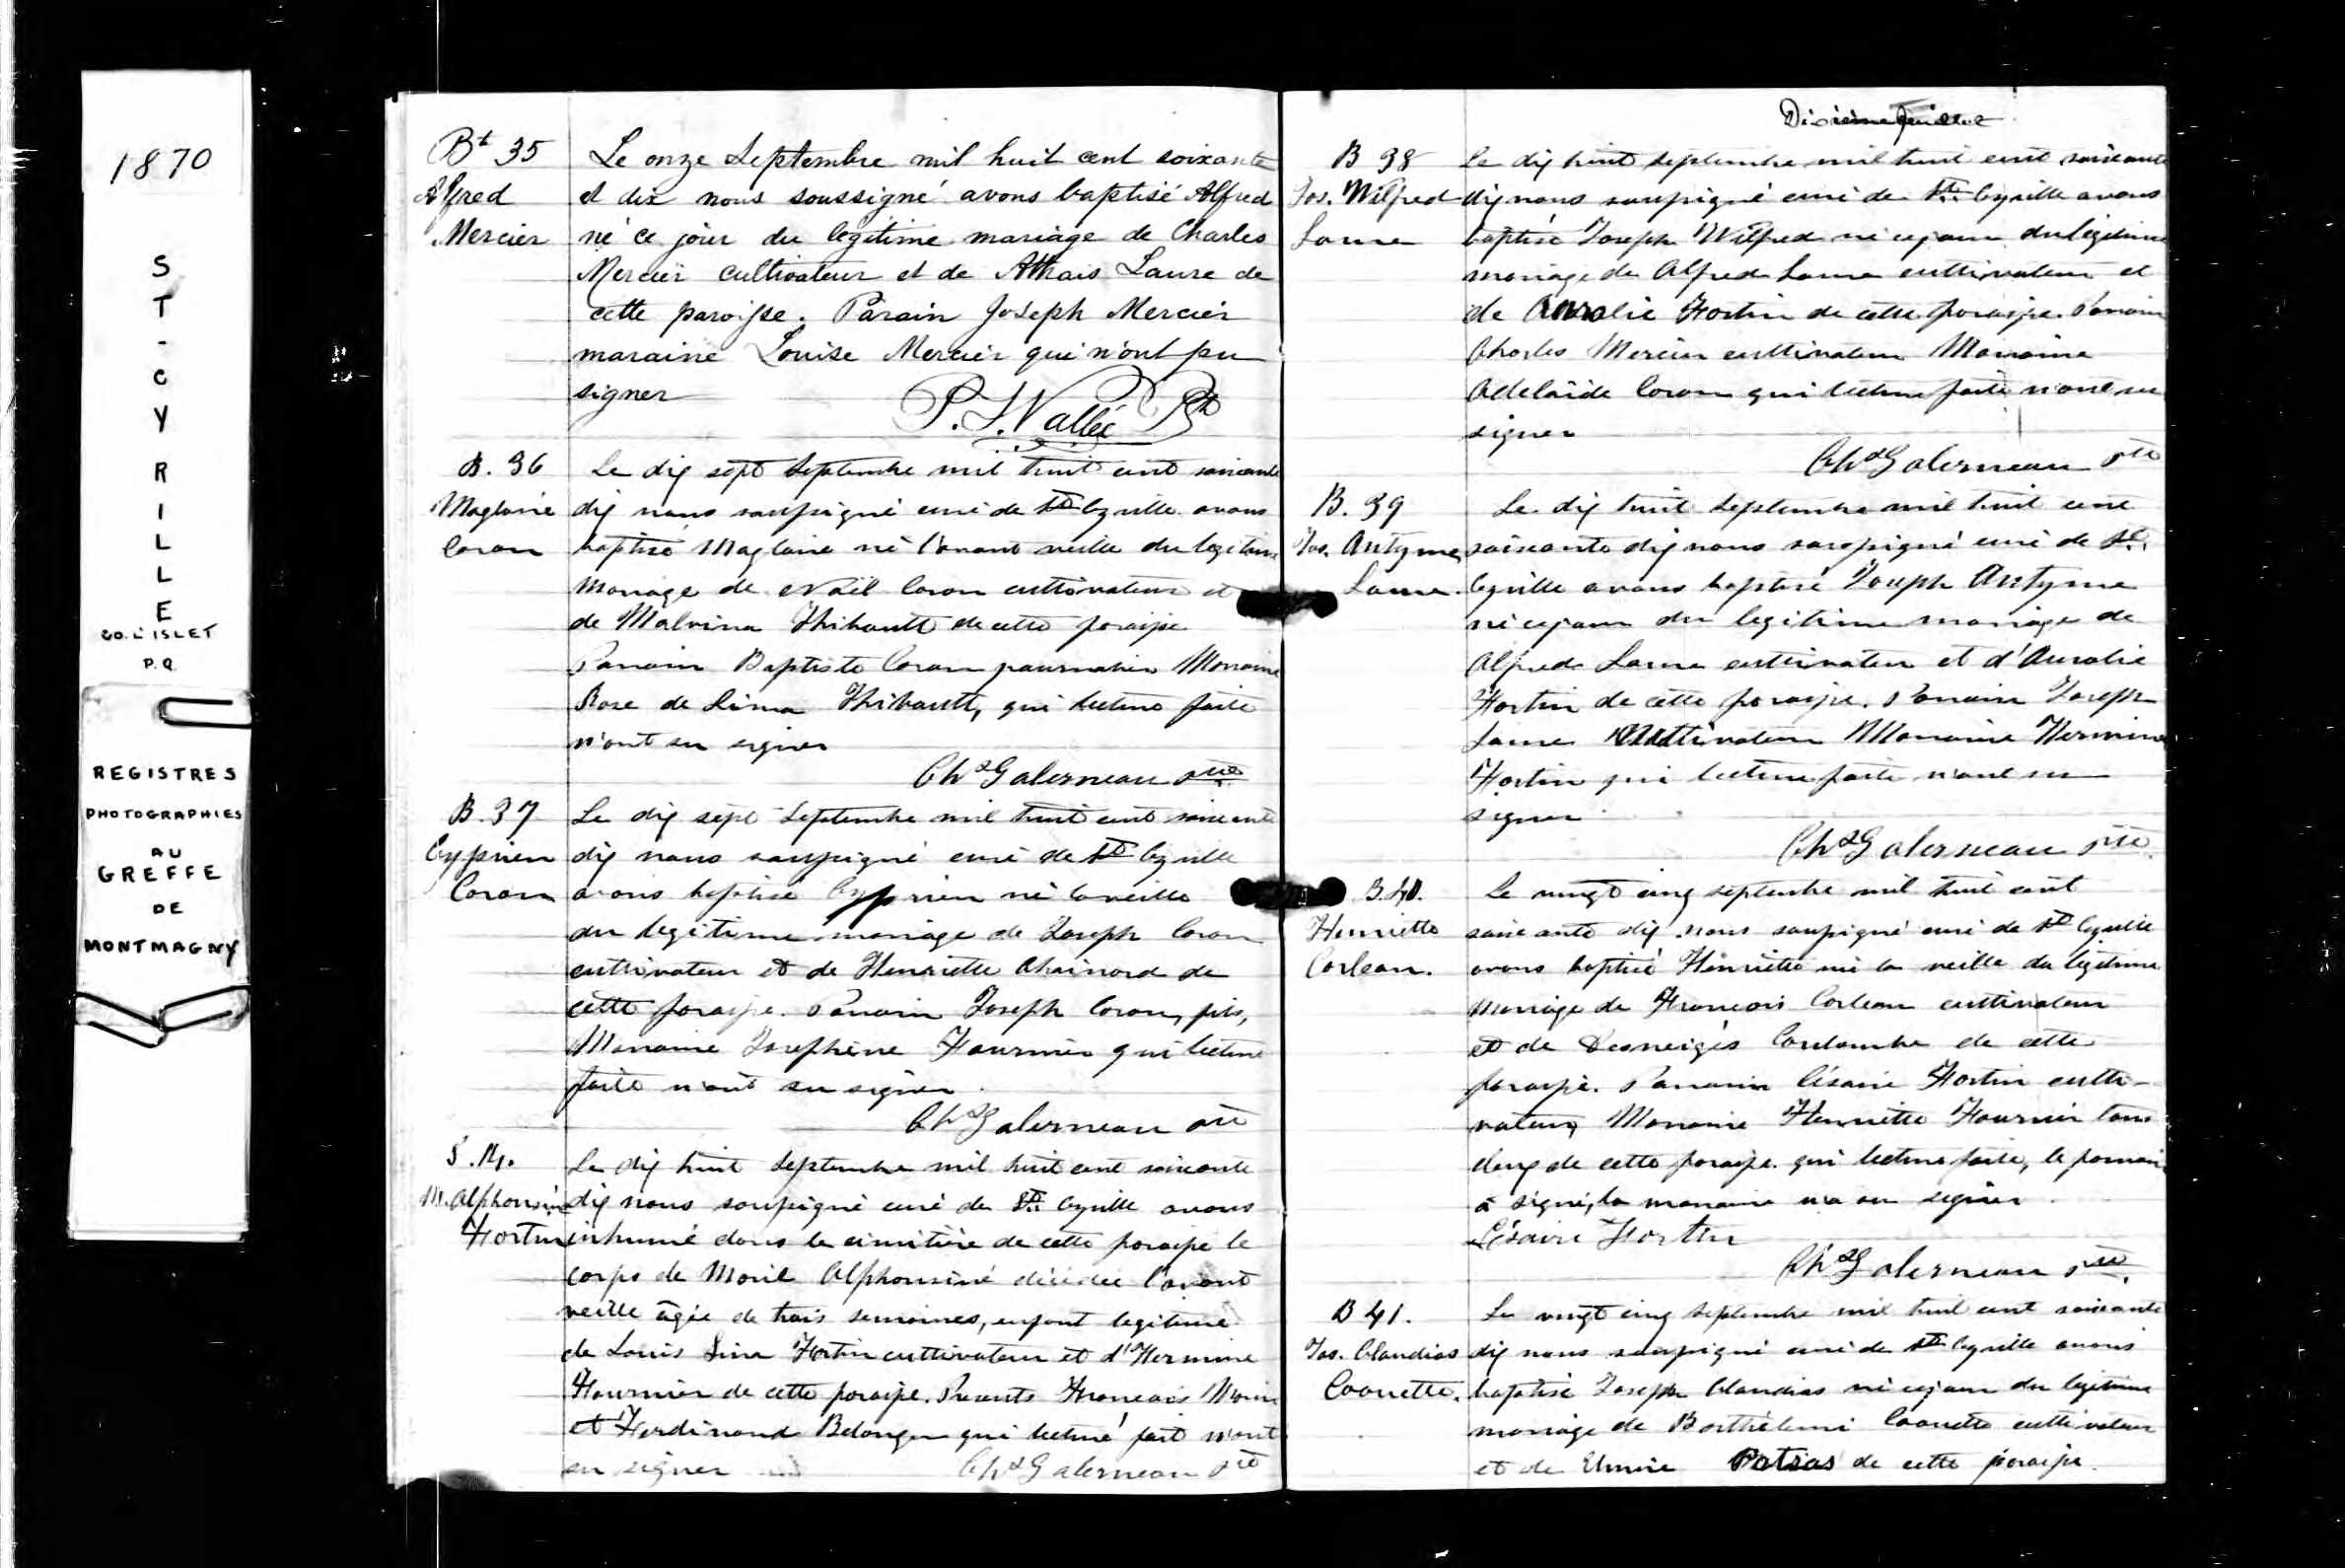 1870
S
T
-
C
Y
R
I
L
L
E
CO. L'ISLET
P.Q.
REGISTRES
PHOTOGRAPHIES
AU
GREFFE
DE
MONTMAGNY
Bt 35
Alfred
Mercier
Le onze Septembre mil huit cent soixante
et dix nous soussigné avons baptisé Alfred
né ce jour du légitime mariage de Charles
Mercier cultivateur et de Athais Laure de
cette paroisse. Parain Joseph Mercier
maraine Louise Mercier qui n'ont pu
signer
P. J. Vallée Pst
B. 36
Magloire
Caron
Le dix sept Septembre mil huit cent soixante
dix nous soussigné curé de St Cyrille avons
baptisé Magloire né l'avant veille du legitime
mariage de Noël Caron cultivateur et
de Malvina Thibault de cette paroisse
Parrain Baptiste Caron journalier Marraine
Rose de Lima Thibault, qui lecture faite
n'ont su signer
Chs Galerneau ptre
B. 37
Cyprien
Caron
Le dix sept Septembre mil huit cent soixante
dix nous soussigné curé de St Cyrille
avons baptisé Cyprien né la veille
du legitime mariage de Joseph Caron
cultivateur et de Henriette Chainard de
cette paroisse. Parrain Joseph Caron, fils,
Marraine Josephine Fournier qui lecture
faite n'ont su signer.
Chs Galerneau ptre
S. 14.
M. Alphonsine
Fortin
Le dix huit Septembre mil huit cent soixante
dix nous soussigné curé de St. Cyrille avons
inhumé dans le cimitière de cette paroisse le
corps de Marie Alphonsine décédée l'avant
veille âgée de trois semaines, enfant legitime
de Louis Fortin cultivateur et d'Hermine
Fournier de cette paroisse. Présents Francois Morin
et Ferdinand Belanger qui lecture fait n'ont
su signer
Chs Galerneau ptre
Dixième feuillet
B 38
Jos. Wilfred
Laure
Le dix huit septembre mil huit cent soixante
dix nous soussigné curé de St. Cyrille avons
baptisé Joseph Wilfred né ce jour du légitime
mariage de Alfred Laure cultivateur et
de Auralie Fortin de cette paroisse. Parrain
Charles Mercier cultivateur Marraine
Adelaïde Caron qui lecture faite n'ont su
signer
Chs Galerneau ptre
B. 39
Jos. Antyme
Laure.
Le dix huit Septembre mil huit cent
soixante dix nous soussigné curé de St.
Cyrille avons baptisé Joseph Antyme
né ce jour du legitime mariage de
Alfred Laure cultivateur et d'Auralie
Fortin de cette paroisse. Parrain Joseph
Laure cultivateur Marraine Hermine
Fortin qui lecture faite n'ont su
signer
Chs Galerneau ptre.
B. 40.
Henriette
Corleau.
Le vingt cinq septembre mil huit cent
soixante dix nous soussigné curé de St Cyrille
avons baptisé Henriette née la veille du légitime
mariage de Francois Corleau cultivateur
et de Desneiges Coulombe de cette
paroisse. Parrain Césaire Fortin culti-
vateur, Marraine Henriette Fournier tous
deux de cette paroisse qui lecture faite, le parrain
a signé, la marraine n'a su signer.
Césaire Fortin
Chs Galerneau ptre.
B 41.
Jos. Claudias
Caouette.
Le vingt cinq Septembre mil huit cent soixante
dix nous soussigné curé de St Cyrille avons
baptisé Joseph Claudias né ce jour du légitime
mariage de Barthélemi Caouette cultivateur
et de Elmire Potras de cette paroisse.